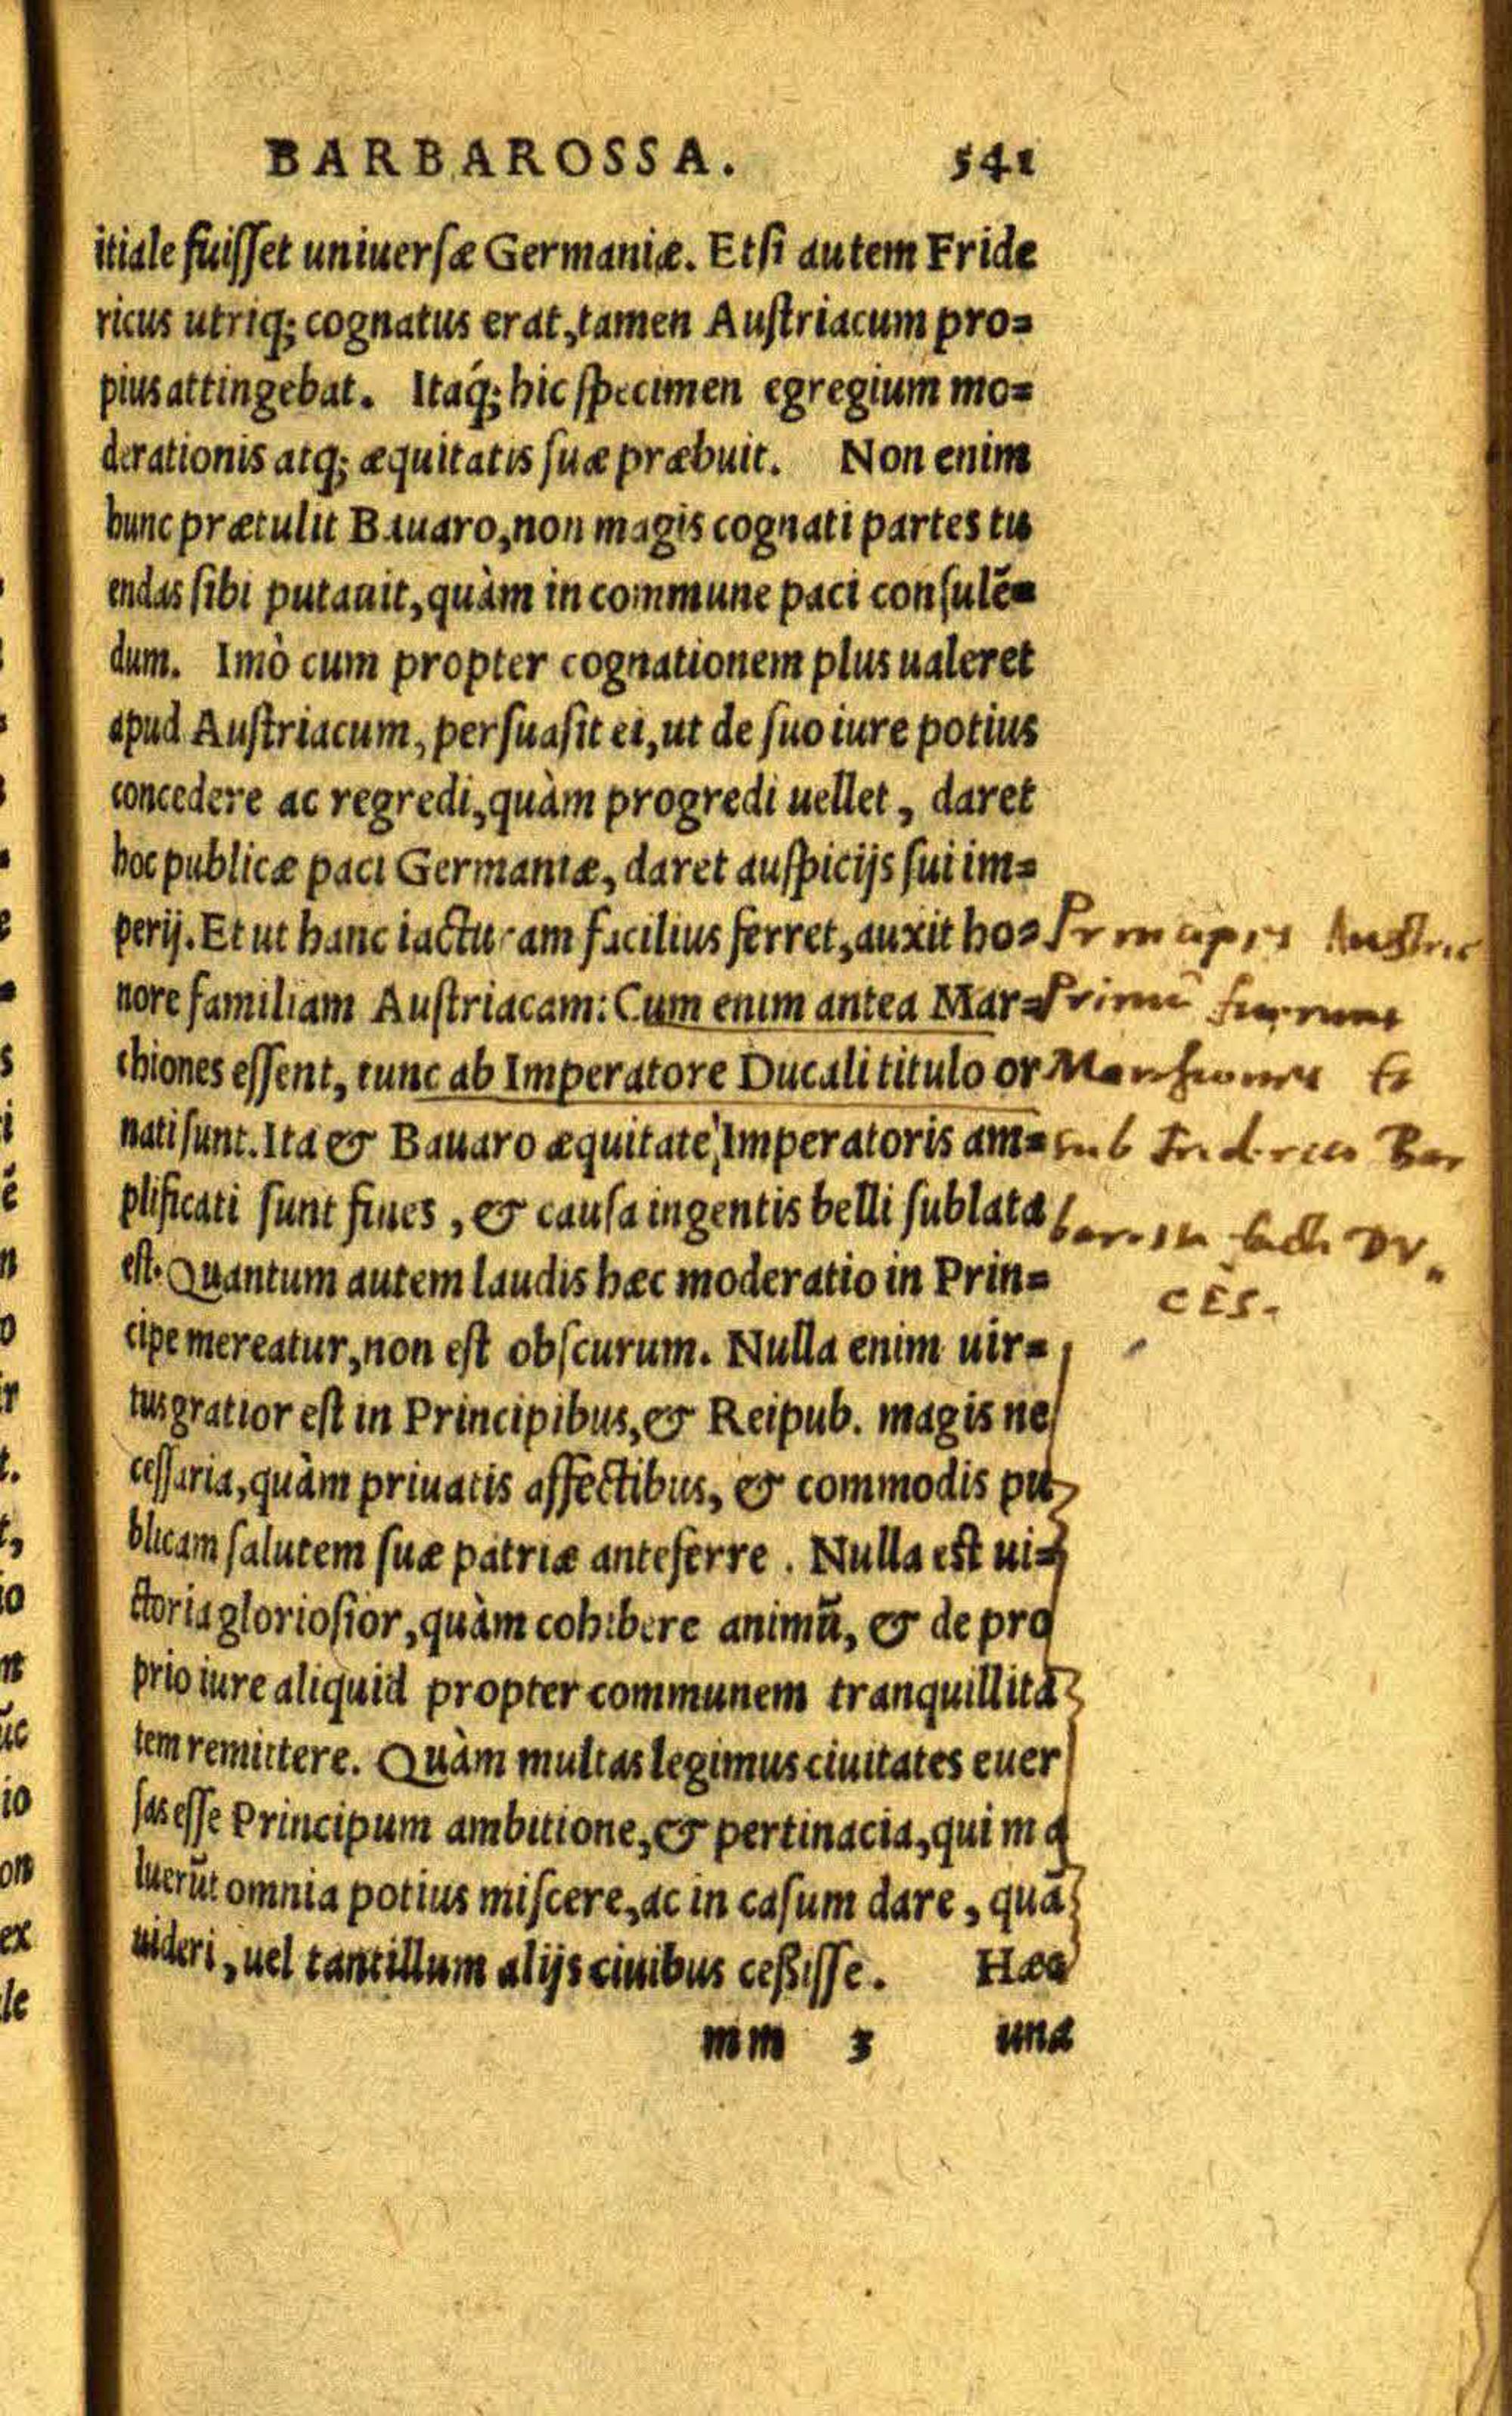 BARBAROSSA. 541
itiale fuisset uniuersæ Germaniæ. Etsi autem Fride
ricus utriq; cognatus erat, tamen Austriacum pro=
pius attingebat. Itaq́; hic specimen egregium mo=
derationis atq; æquitatis suæ præbuit. Non enim
hunc prætulit Bauaro, non magis cognati partes tu
endas sibi putauit, quàm in commune paci consulē=
dum. Imò cum propter cognationem plus ualeret
apud Austriacum, persuasit ei, ut de suo iure potius
concedere ac regredi, quàm progredi uellet, daret
hoc publicæ paci Germaniæ, daret auspicijs sui im=
perij. Et ut hanc iacturam facilius ferret, auxit ho=
nore familiam Austriacam: Cum enim antea Mar=
chiones essent, tunc ab Imperatore Ducali titulo or
nati sunt. Ita & Bauaro æquitate Imperatoris am=
plificati sunt fines, & causa ingentis belli sublata
est. Quantum autem laudis hæc moderatio in Prin=
cipe mereatur, non est obscurum. Nulla enim uir=
tus gratior est in Principibus, & Reipub. magis ne
cessaria, quàm priuatis affectibus, & commodis pu
blicam salutem suæ patriæ anteferre. Nulla est ui=
ctoria gloriosior, quàm cohibere animū, & de pro
prio iure aliquid propter communem tranquillita
tem remittere. Quàm multas legimus ciuitates euer
sas esse Principum ambitione, & pertinacia, qui ma
luerūt omnia potius miscere, ac in casum dare, quā
uideri, uel tantillum alijs ciuibus ceßisse. Hæc
mm 3 una
Principes Austriæ
Primū fuerunt
Marchiones &
sub Friderico Bar
barossa facti DV
CES.